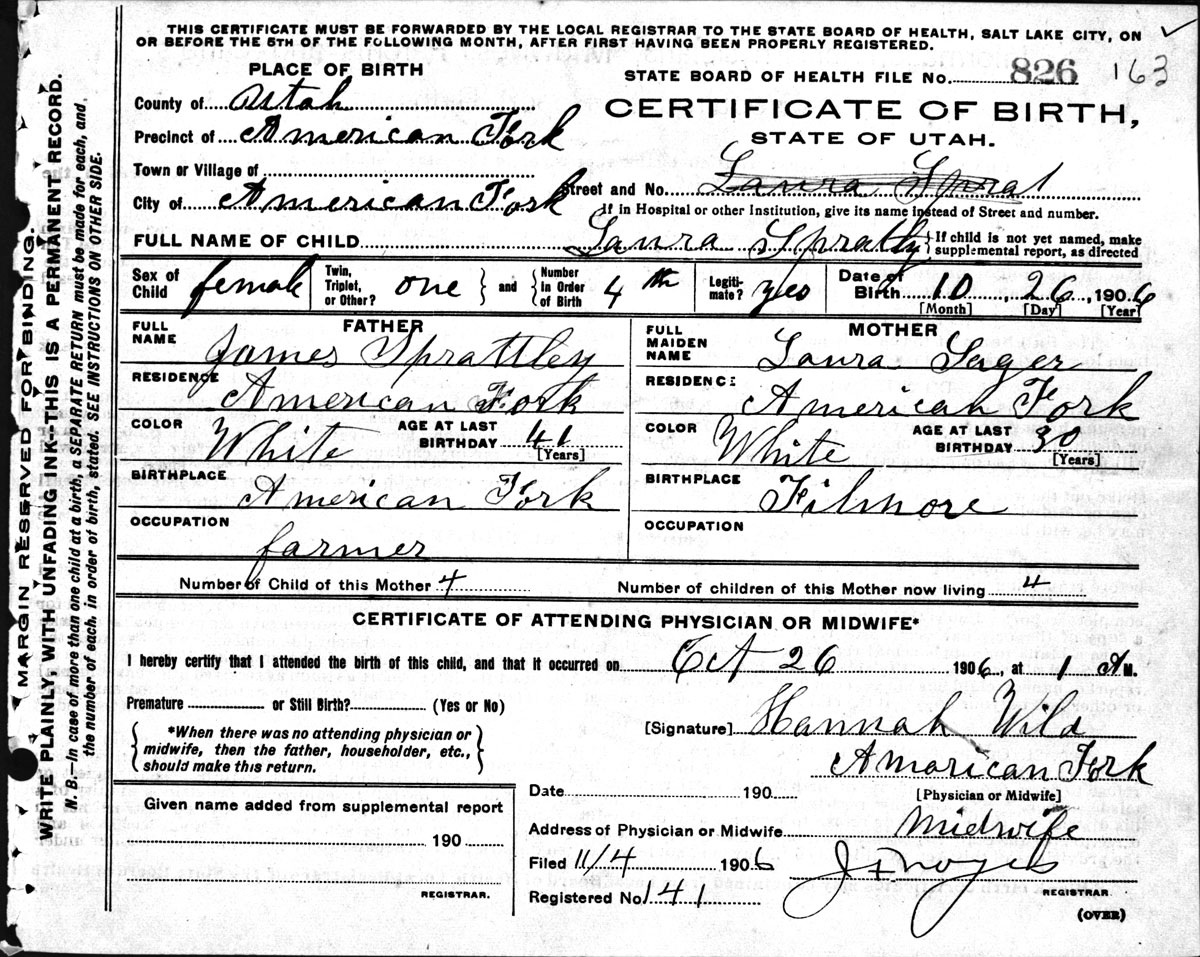 THIS CERTIFICATE MUST BE FORWARDED BY THE LOCAL REGISTRAR TO THE STATE BOARD OF HEALTH, SALT LAKE CITY, ON
OR BEFORE THE 5TH OF THE FOLLOWING MONTH, AFTER FIRST HAVING BEEN PROPERLY REGISTERED.
PLACE OF BIRTH
STATE BOARD OF HEALTH FILE No. 826 163
County of Utah
CERTIFICATE OF BIRTH,
Precinct of American Fork
STATE OF UTAH.
Town or Village of
Street and No. Laura Sprat
City of American Fork
If in Hospital or other Institution, give its name instead of Street and number.
FULL NAME OF CHILD Laura Spratly
If child is not yet named, make
supplemental report, as directed
Sex of Child female
Twin, Triplet, or Other? one and Number in Order of Birth 4th
Legitimate? yes
Date of Birth 10, 26, 1906
[Month] [Day] [Year]
FATHER
FULL NAME James Sprattley
RESIDENCE American Fork
COLOR White
AGE AT LAST BIRTHDAY 41
[Years]
BIRTHPLACE American Fork
OCCUPATION
farmer
MOTHER
FULL MAIDEN NAME Laura Sager
RESIDENCE American Fork
COLOR White
AGE AT LAST BIRTHDAY 30
[Years]
BIRTHPLACE Filmore
OCCUPATION
Number of Child of this Mother 4
Number of children of this Mother now living 4
CERTIFICATE OF ATTENDING PHYSICIAN OR MIDWIFE*
I hereby certify that I attended the birth of this child, and that it occurred on Oct 26 1906, at 1 A M.
Premature or Still Birth? (Yes or No)
[Signature] Hannah Wild
*When there was no attending physician or
midwife, then the father, householder, etc.,
should make this return.
Amarican Fork
Date 190
[Physician or Midwife]
Given name added from supplemental report
Address of Physician or Midwife Midwife
190
Filed 11/4 1906
J F Noyes
REGISTRAR.
Registered No 141
REGISTRAR.
(OVER)
(MARGIN RESERVED FOR BINDING.
WRITE PLAINLY, WITH UNFADING INK--THIS IS A PERMANENT RECORD.
N. B.—In case of more than one child at a birth, a SEPARATE RETURN must be made for each, and,
the number of each, in order of birth, stated. SEE INSTRUCTIONS ON OTHER SIDE.